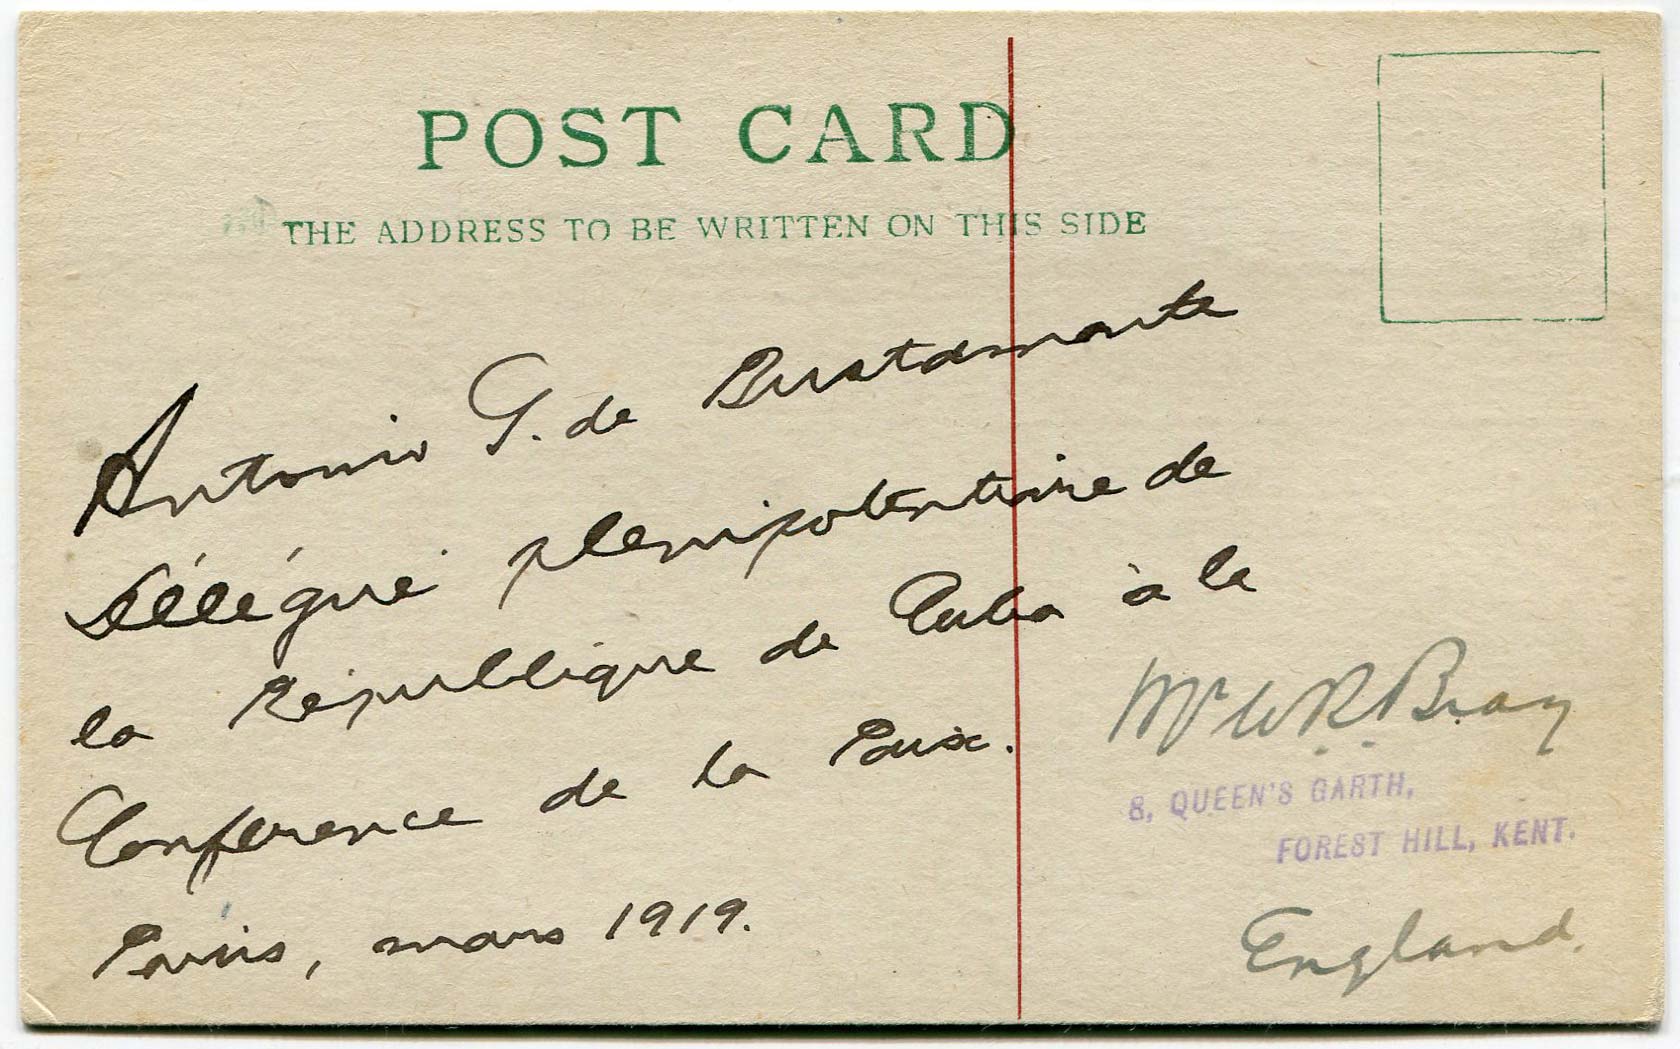 POST CARD
THE ADDRESS TO BE WRITTEN ON THIS SIDE
Antonio G. de Bustamante
Délégué plenipotentiaire de
la République de Cuba à la
Conference de la Paix.
Paris, mars 1919.
Mr W. R. Bray
8, QUEEN'S GARTH,
FOREST HILL, KENT.
England.